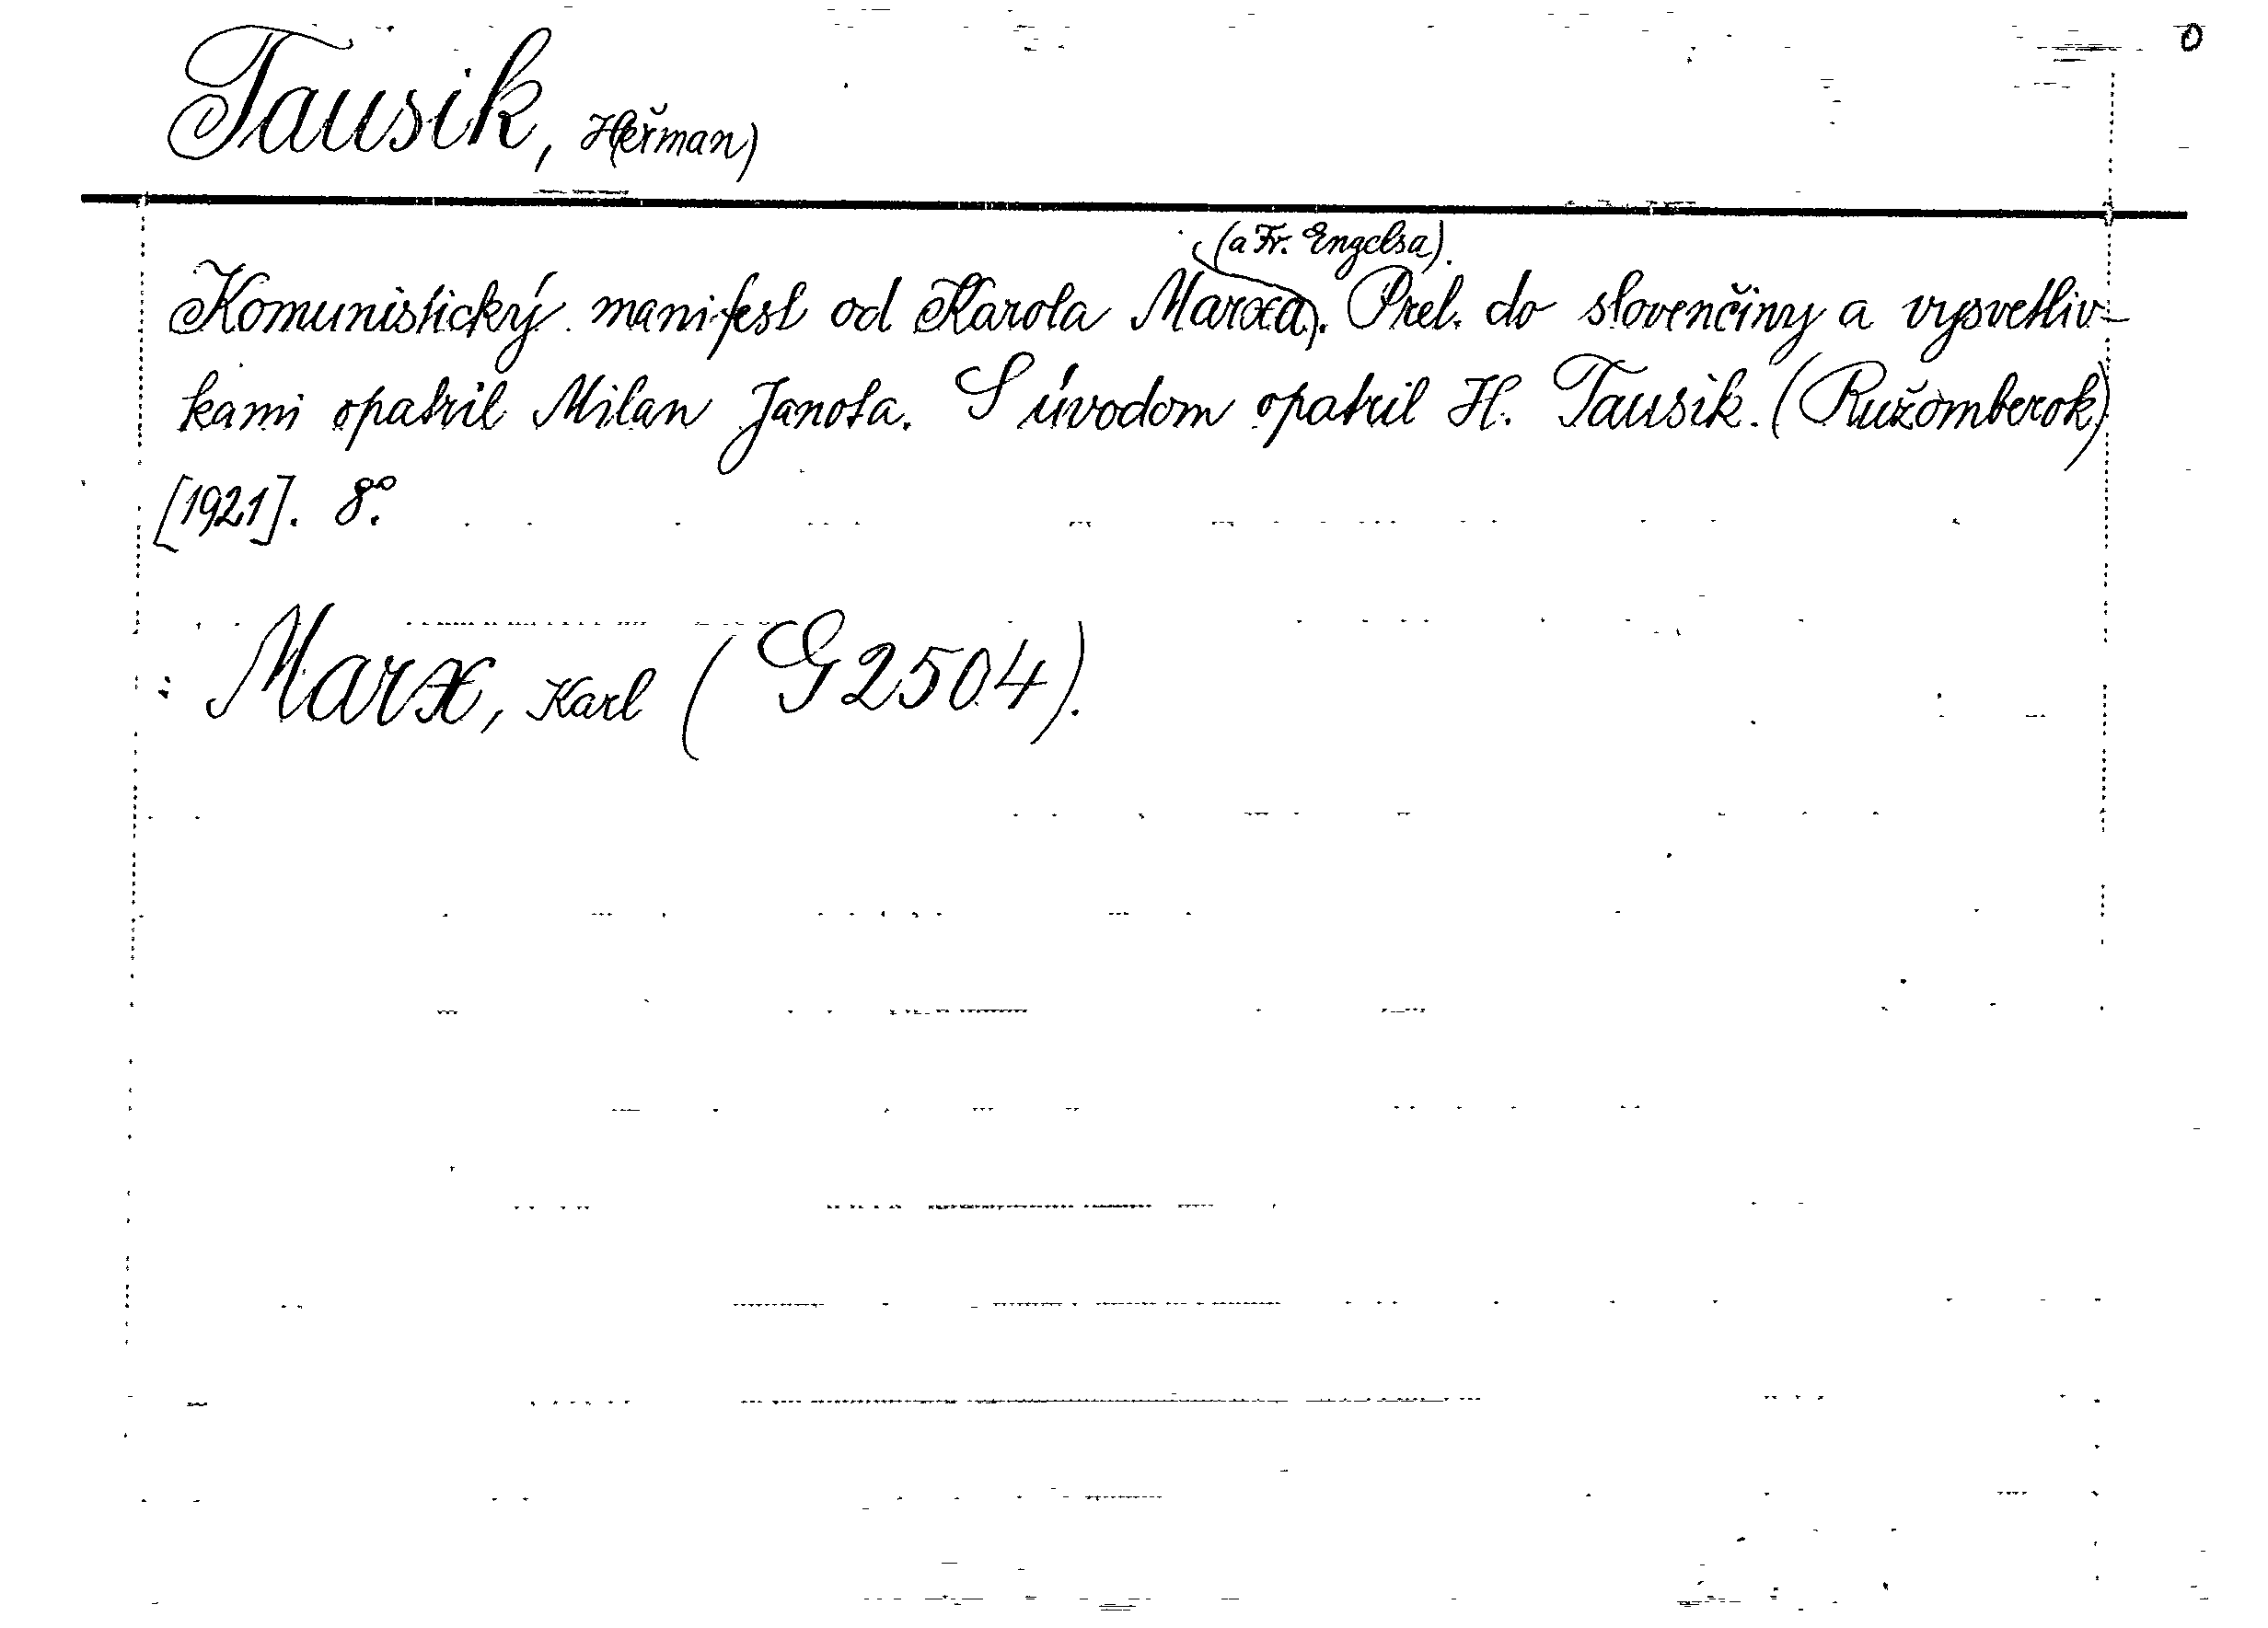 0
Tausik, H(eřman)
(a Fr. Engelsa).
Komunistický manifest od Karola Marxa). Prel. do slovenčiny a vysvetliv-
kami opatril Milan Janota. S úvodom opatril H. Tausik. (Ružomberok)
[1921]. 8°.
: Marx, Karl (G2504).